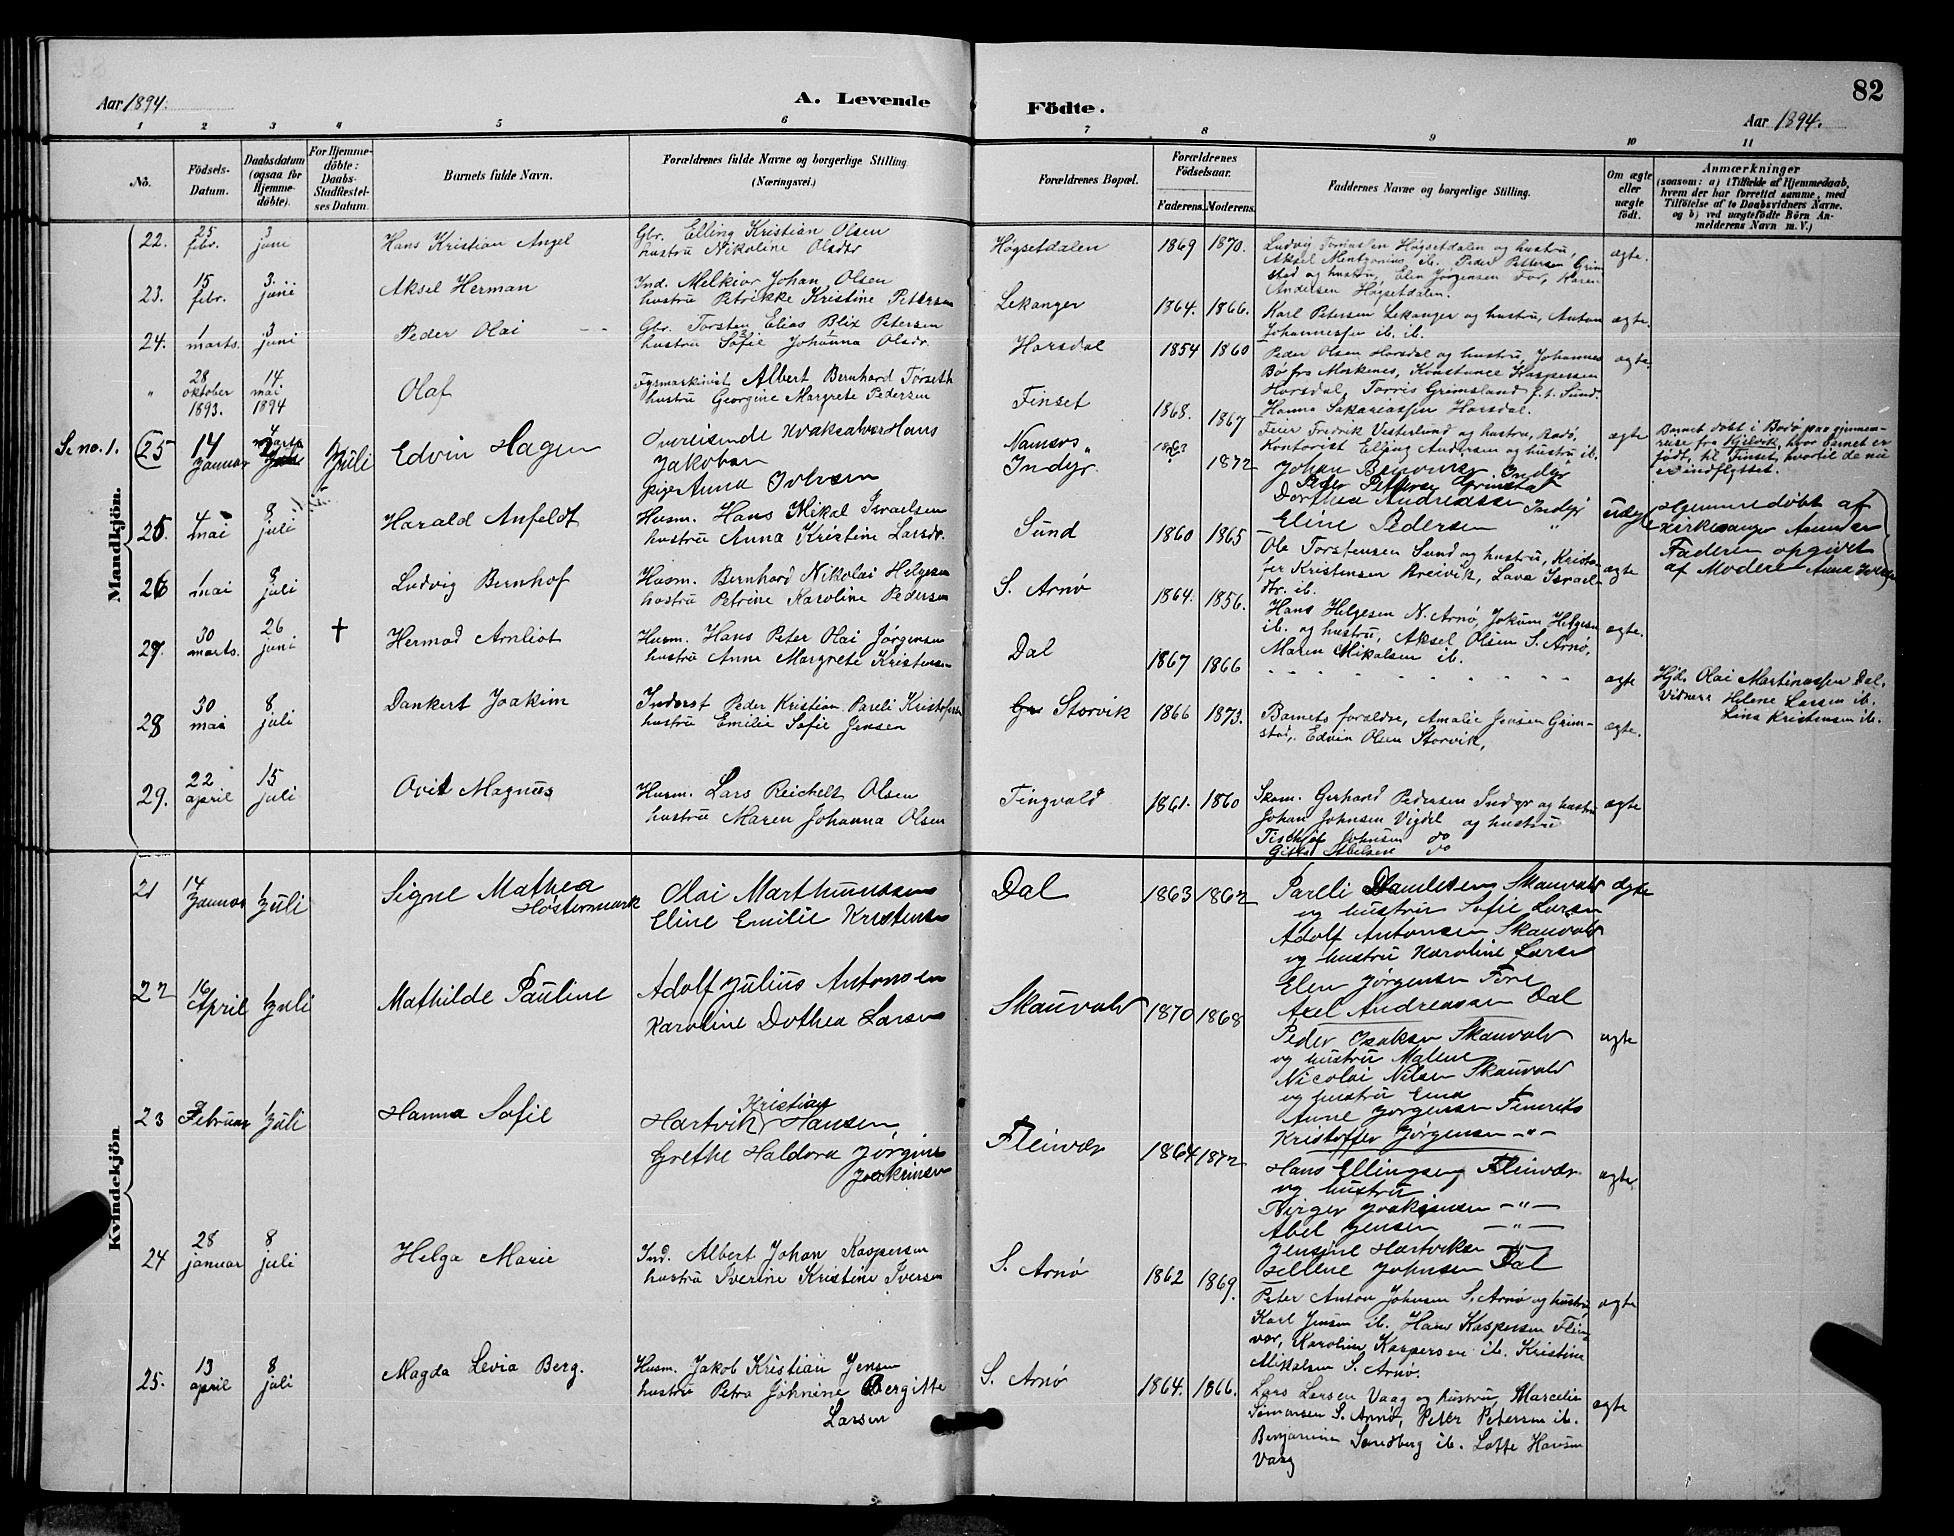 82
Aar 1894.
A. Levende
Födte.
Aar 1894.
1 2 3 4 5 6 7 8 9 10 11
No.
Födsels-Datum.
Daabsdatum (ogsaa for Hjemme-döbte).
For Hjemme-döbte: Daabs-Stadfæstel-ses Datum.
Barnets fulde Navn.
Forældrenes fulde Navne og borgerlige Stilling. (Næringsvei.)
Forældrenes Bopæl.
Forældrenes Födselsaar.
Faderens. Moderens.
Faddernes Navne og borgerlige Stilling.
Om ægte eller uægte födt.
Anmærkninger
(saasom: a) i Tilfælde af Hjemmedaab,
hvem der har forrettet samme, med
Tilföielse af to Daabsvidners Navne.
og b) ved uægtefödte Börn An-
melderens Navn m. V.)
Mandkjön.
22. 25 febr. 3 juni Hans Kristian Angel Gbr. Elling Kristian Olsen
hustru Nikoline Olsdr Høgsetdalen 1869 1870.
Ludvig Tomassen Høgsetdalen og hustru,
Aksel Montgonius ib. Peder Pettersen Grim
stad og hustru, Elen Jørgensen For, Karen
Andersen Høgsetdalen. ægte.
23. 15 febr. 3. juni Aksel Herman Ind. Melkior Johan Olsen
hustru Petrikke Kristine Petersen Lekanger 1864. 1866.
Karl Petersen Lekanger og hustru, Anton
Johannessen ib. ib. ægte.
24. 1 marts. 3 juni Peder Olai Gbr. Torsten Elias Blix Petersen
hustru Sofie Johanna Olsdr. Horsdal 1854 1860
Peder Olsen Horsdal og hustru, Johannes
Bø fra Moskenes, Konstance Kaspersen
Horsdal, Torris Grimsland p.t. Sund.
Hanna Sakariassen Horsdal. ægte
" 28 oktober 1893. 14 mai 1894 Olaf Fyrmarkvist Albert Bernhard Torseth
hustru Georgine Margrete Pedersen Finset 1868. 1867
Feier Fredrik Vesterlund og hustru, Bodø,
Kontorist Elling Andersen og hustru ib. ægte
Barnet døbt i Bodø paa gjennem-
reise fra Kjelvik, hvor barnet er
født, til Finset, hvortil de nu
er indflyttet.
S. no. 1. 25 14 Januar 4 marts Juli Edvin Hagen Overeisende Kvaksalver Hans
Jakobsen
pige Anna Iversen
Namsos
Indyr 1863 1872
Johan Breivik Indyr
Peder Pettersen Grimstad
Dorthea Andreassen Indyr
Eline Pedersen "
uægte Hjemmedøbt af
Kirkesanger Amundsen
Faderen opgivet
af Moderen Anna Iversen
25. 4 mai 8 juli Harald Anfeldt Husm. Hans Mikal Israelsen
hustru Anna Kristine Larsdr. Sund 1860 1865
Ole Torstensen Sund og hustru, Kristo-
fer Kristensen Breivik, Lava Israels-
dtr. ib. ægte
26 1 mai 8 juli Ludvig Bernhof Husm. Bernhard Nikolai Helgesen
hustru Petrine Karoline Pedersen S. Arnø 1864. 1856.
Hans Helgesen N. Arnø, Jokum Helgesen
ib. og hustru, Aksel Olsen S. Arnø,
Maren Mikalsen ib. ægte.
27. 30 marts. 26 juni † Hermod Arnliot Husm. Hans Peter Olai Jørgensen
hustru Anne Margrete Kristensen Dal 1867 1866 ægte
Hjd. Olai Martinussen Dal.
Vidner: Helene Larsen ib.
Lina Kristensen ib.
28 30 mai 8. juli Dankert Joakim Inderst Peder Kristian Pareli Kristofersen
hustru Emilie Sofie Jensen Storvik 1866 1873.
Barnets forældre, Amalie Jensen Grim-
stad, Edvin Olsen Storvik, ægte.
29. 22 april 15 juli Ovit Magnus Husm. Lars Reichelt Olsen
hustru Maren Johanna Olsen Tingvold 1861. 1860
Skom. Gerhard Pedersen Indyr og hustru
Johan Johnsen Vigdel og hustru
Tischlof Johnsen do
Gitte Abelsen do ægte
Kvindekjön
21 14 Januar 1 Juli Signe Mathea
Høstermark Olai Marthinussen
Eline Emilie Kristensen Dal 1863 1862
Pareli Danielsen Skauvold
og hustru Sofie Larsen
Adolf Antonsen Skauvold
og hustru Karoline Larsen
Elen Jørgensen Fore
Axel Andreassen Dal ægte
22 16 April 1 Juli Mathilde Pauline Adolf Julius Antonsen
Karoline Dothea Larsen Skauvold 1870 1868
Peder Isaksen Skauvold
og hustru Malene
Nicolai Nilsen Skauvold
og hustru Ema
Anne Jørgensen Finnæs
Kristoffer Jørgensen -"- ægte
23 2 Februar 1 Juli Hanna Sofie Kristian
Hartvik Hansen
Grethe Haldora Jørgine
Joakimsen Fleinvær 1864 1872
Hans Ellingsen Fleinvær
og hustru
Birger Joakimsen -"-
Abel Jensen -"-
Jensine Hartviksen -"-
Hellene Johnsen Dal ægte
24 28 januar 8 juli Helga Marie Ind. Albert Johan Kaspersen
hustru Iverine Kristine Iversen S. Arnø 1862 1869.
Peter Anton Johnsen S. Arnø og hustru,
Karl Jensen ib. Hans Kaspersen Flein-
vær, Karoline Kaspersen ib. Kristine
Mikalsen S. Arnø. ægte
25. 13 april 8 juli Magda Levia Berg. Husm. Jakob Kristian Jensen
hustru Petra Johnine Bergitte
Larsen S. Arnø 1864. 1866.
Lars Larsen Vaag og hustru, Marcelie
Simonsen S. Arnø, Peter Petersen ib.
Benjamine Sandberg ib. Lotte Hansen
Vaag ægte